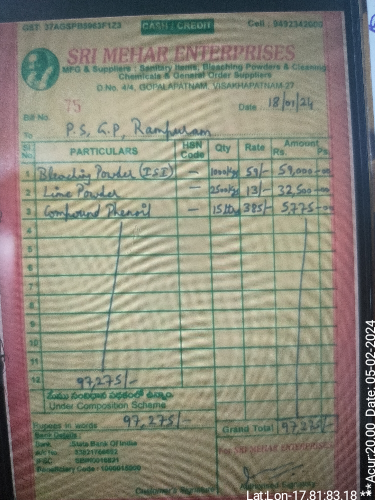 GST: 37AGSFB5963F1Z3 CASH / CREDIT Cell : 9492342600
SRI MEHAR ENTERPRISES
MFG & Suppliers : Sanitary Items, Bleaching Powders & Cleaning
Chemicals & General Order Suppliers
D.No. 4/4, GOPALAPATNAM, VISAKHAPATNAM-27
Bill No. 75 Date 18/01/24
To P.S, G.P, Rampuram
Sl. No. PARTICULARS HSN Code Qty Rate Amount Rs. Ps.
1 Bleaching Powder (ISI) — 1000kg 59/- 59,000-00
2 Lime Powder — 2500kg 13/- 32,500-00
3 Compound Phenoil — 15 ltr 385/- 5,775-00
4
5
6
7
8
9
10
11
12 97,275/-
మేము సంవిధాన పథకంలో ఉన్నాం
Under Composition Scheme
Rupees in words 97,275/- Grand Total 97,275/-
Bank Details :
Bank : State Bank Of India
A/c No.
IFSC
For SRI MEHAR ENTERPRISES
Customer's Signature Authorised Signatory
Lat:Lon-17.81:83.18
**Acur:20.00 Date: 05-02-2024